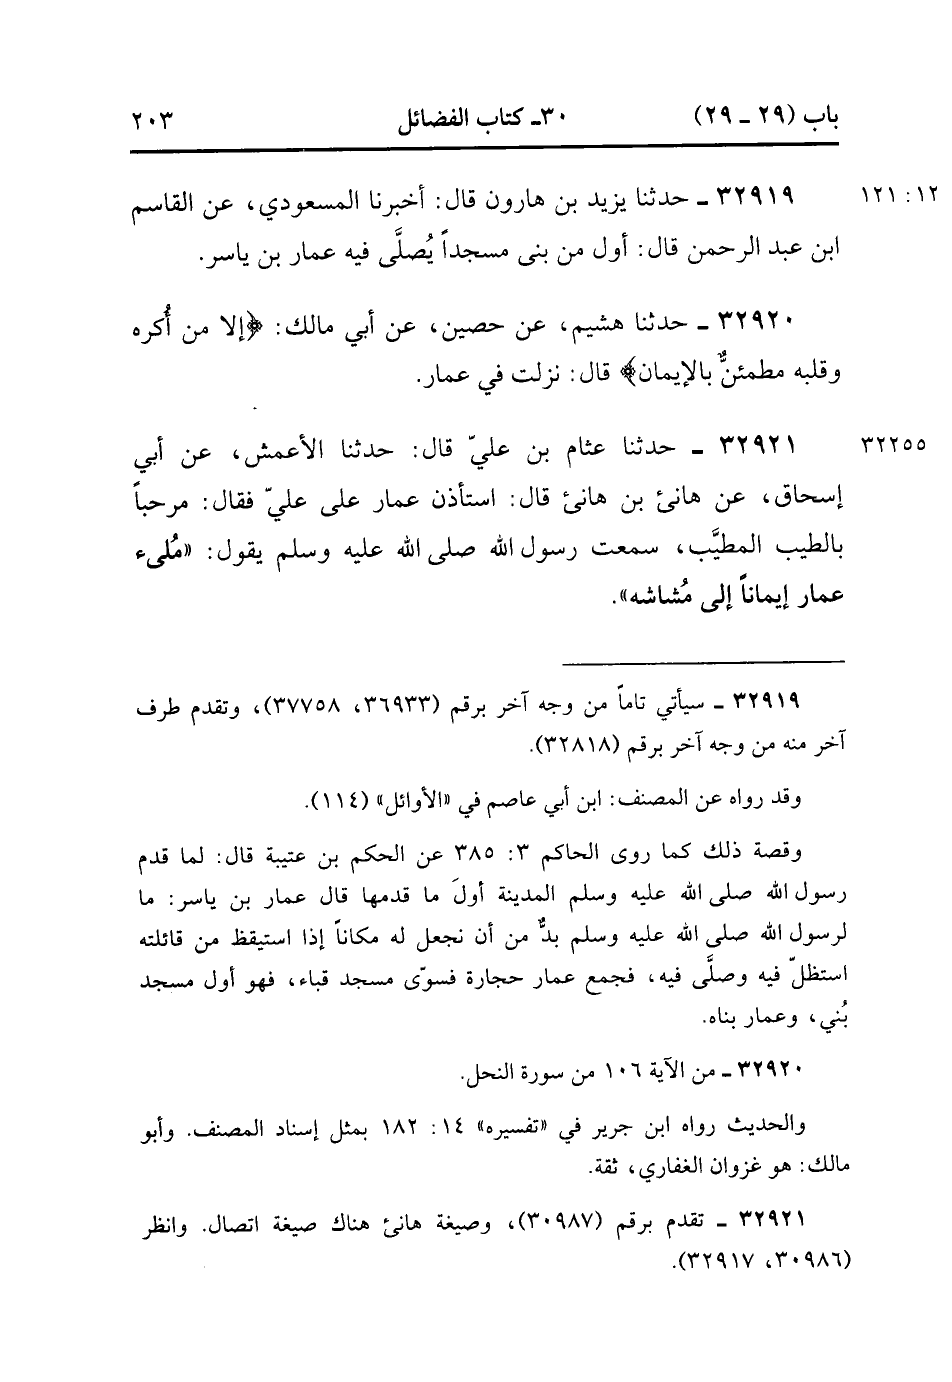 باب (٢٩ ـ ٢٩) ٣٠ـ كتاب الفضائل ٢٠٣
١٢: ١٢١ ٣٢٩١٩ ـ حدثنا يزيد بن هارون قال: أخبرنا المسعودي، عن القاسم
ابن عبد الرحمن قال: أول من بنى مسجداً يُصلَّى فيه عمار بن ياسر.
٣٢٩٢٠ ـ حدثنا هشيم، عن حصين، عن أبي مالك: ﴿إلا من أُكره
وقلبه مطمئنٌّ بالإيمان﴾ قال: نزلت في عمار.
٣٢٢٥٥ ٣٢٩٢١ ـ حدثنا عثام بن عليّ قال: حدثنا الأعمش، عن أبي
إسحاق، عن هانئ بن هانئ قال: استأذن عمار على عليّ فقال: مرحباً
بالطيب المطيَّب، سمعت رسول الله صلى الله عليه وسلم يقول: «مُلىء
عمار إيماناً إلى مُشاشه».
٣٢٩١٩ ـ سيأتي تاماً من وجه آخر برقم (٣٦٩٣٣، ٣٧٧٥٨)، وتقدم طرف
آخر منه من وجه آخر برقم (٣٢٨١٨).
وقد رواه عن المصنف: ابن أبي عاصم في «الأوائل» (١١٤).
وقصة ذلك كما روى الحاكم ٣: ٣٨٥ عن الحكم بن عتيبة قال: لما قدم
رسول الله صلى الله عليه وسلم المدينة أولَ ما قدمها قال عمار بن ياسر: ما
لرسول الله صلى الله عليه وسلم بدٌّ من أن نجعل له مكاناً إذا استيقظ من قائلته
استظلّ فيه وصلَّى فيه، فجمع عمار حجارة فسوّى مسجد قباء، فهو أول مسجد
بُني، وعمار بناه.
٣٢٩٢٠ ـ من الآية ١٠٦ من سورة النحل.
والحديث رواه ابن جرير في «تفسيره» ١٤: ١٨٢ بمثل إسناد المصنف. وأبو
مالك: هو غزوان الغفاري، ثقة.
٣٢٩٢١ ـ تقدم برقم (٣٠٩٨٧)، وصيغة هانئ هناك صيغة اتصال. وانظر
(٣٠٩٨٦، ٣٢٩١٧).